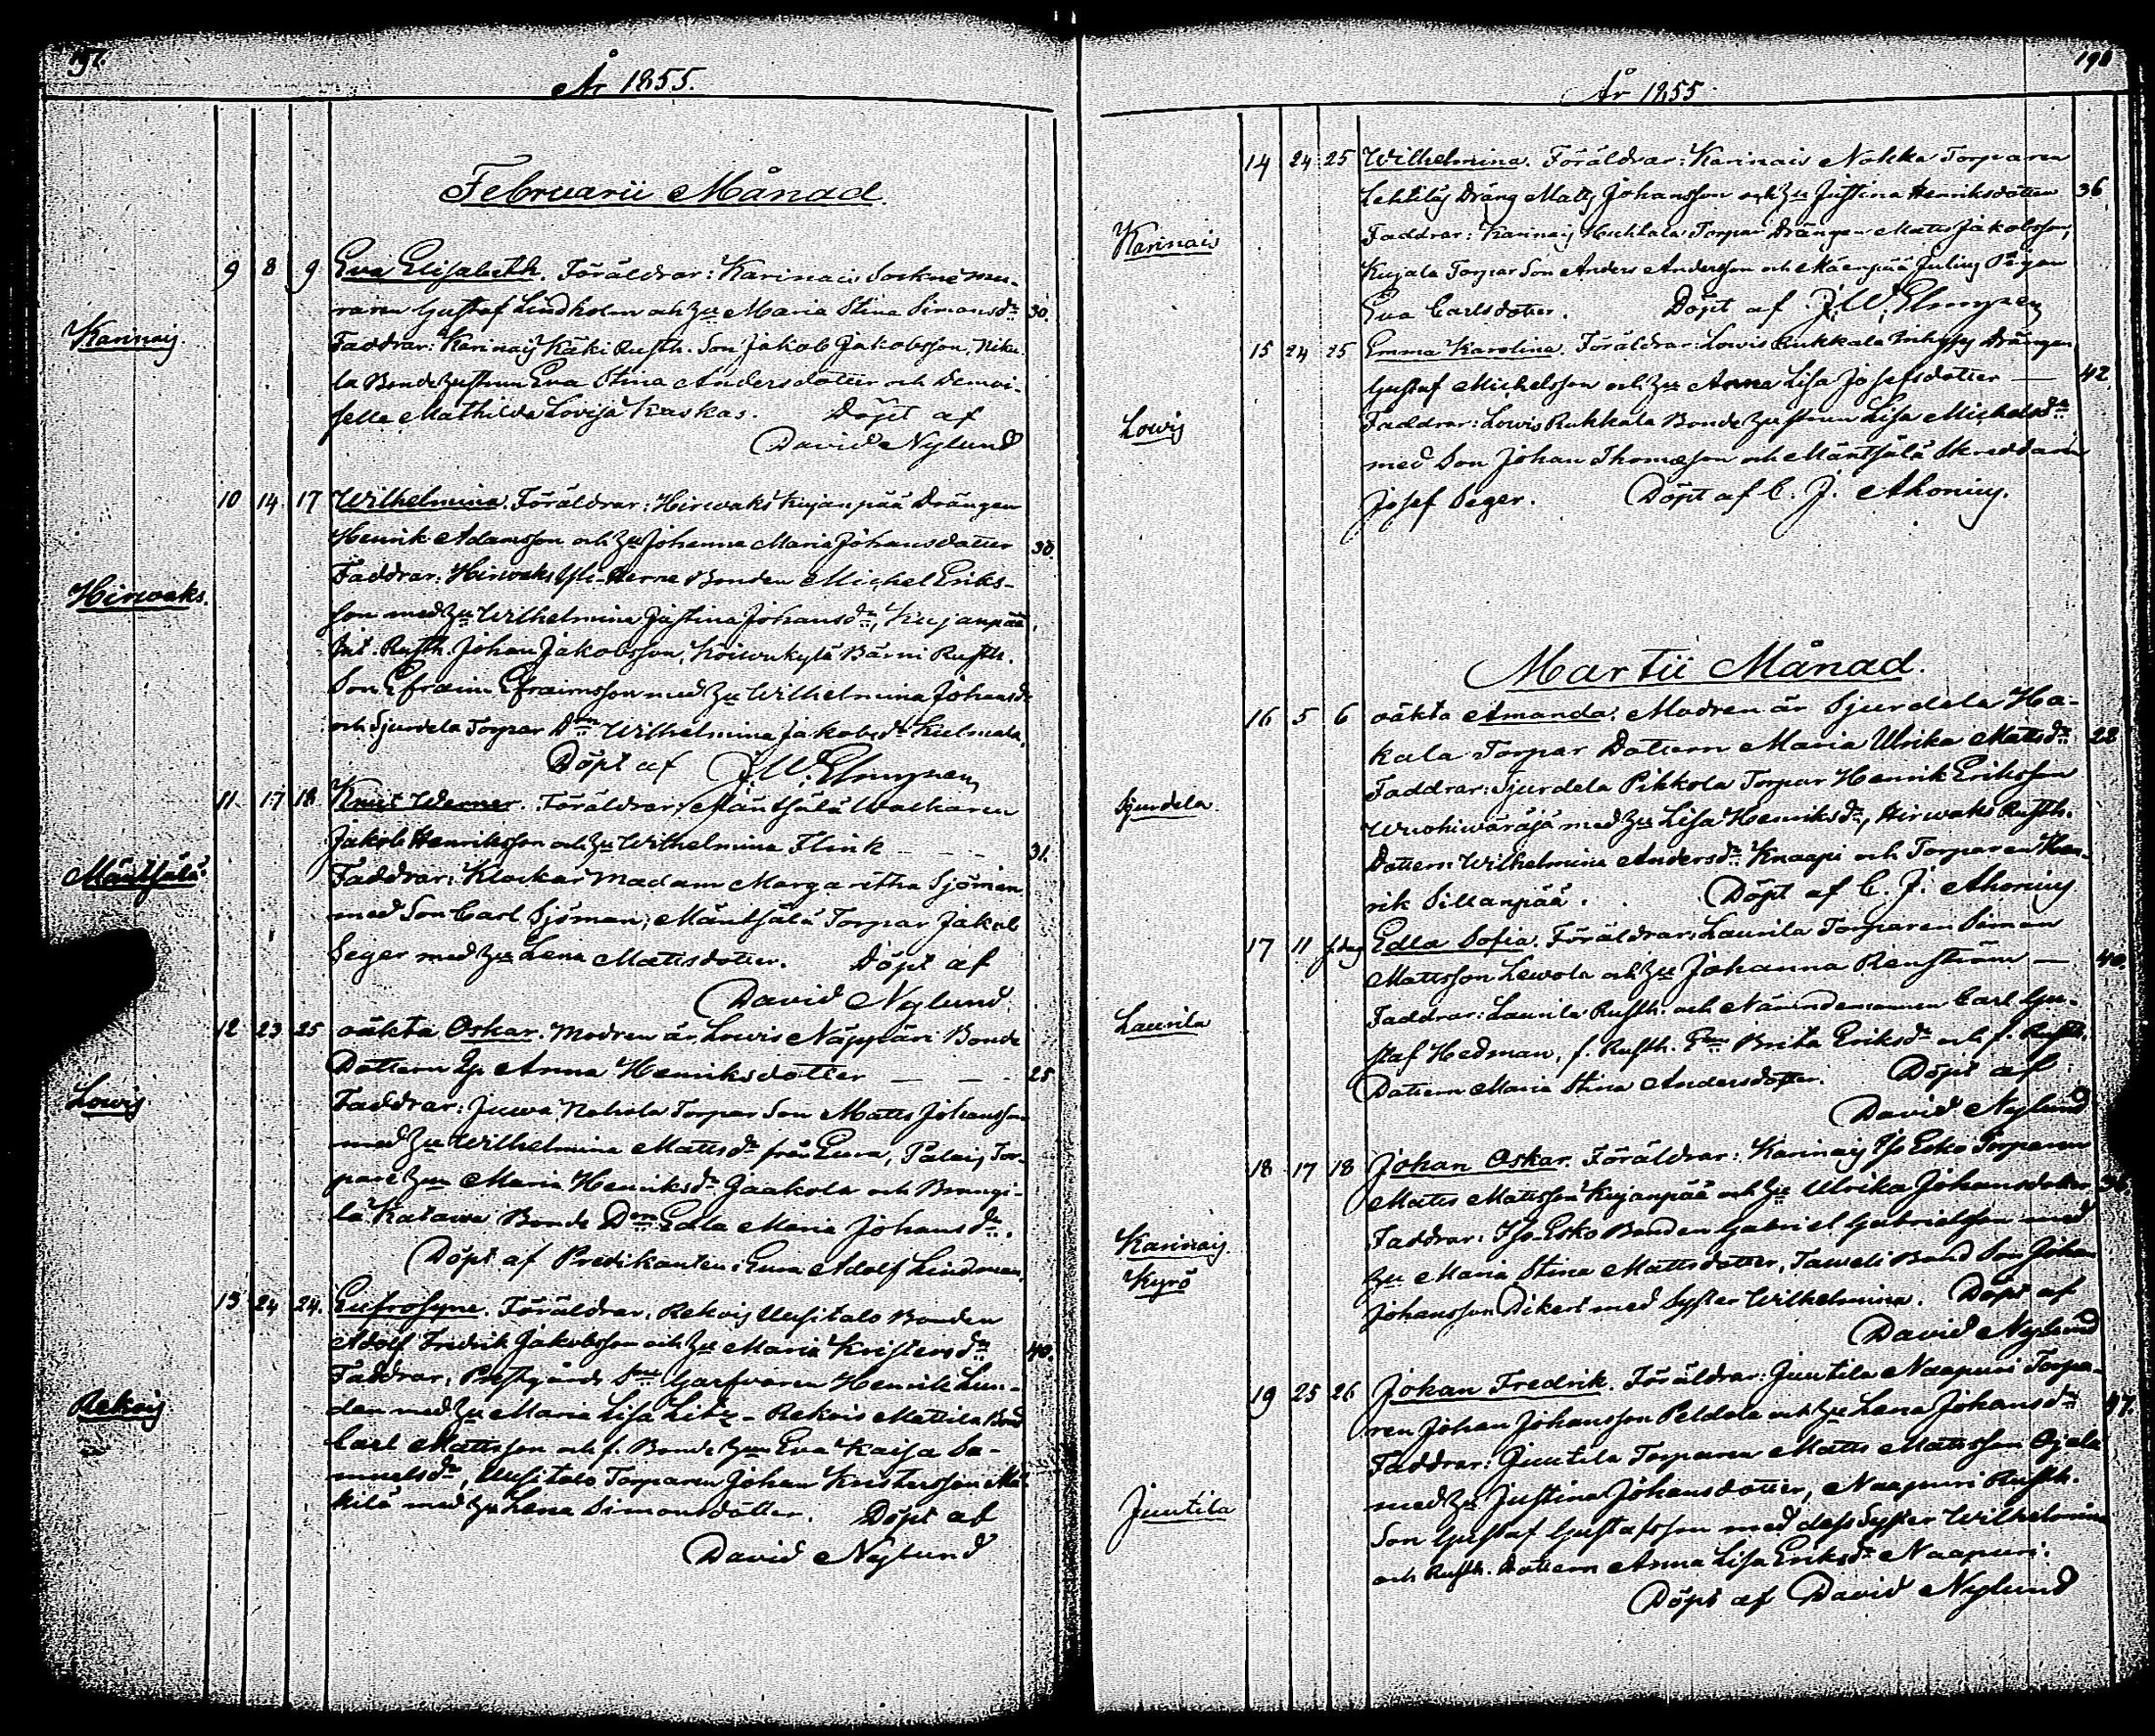 År 1855.
Februarii Månad.
Karinais
9 8 9 Eva Elisabeth. Föräldrar: Karinais Sockne mu-
raren Gustaf Lindholm och Hu Maria Stina Simonsdr 30.
Faddrar: Karinais Käki Rusth. Son Jakob Jakobsson, Niku-
la Bonde Hustrun Eva Stina Andersdotter och Demoi-
selle Mathilda Lovisa Kaskas. Döpt af
David Nylund
Hirwoaks.
10 14 17 Wilhelmina. Föräldrar: Hirwoaks Kujanpää Drängen
Henrik Adamsson och Hu Johanna Maria Johansdotter 30.
Faddrar: Hirwoaks Yli-Kerne Bonden Michel Eriks-
son med Hu Wilhelmina Justina Johansdr, Kujanpää
Rusth. Johan Jakobsson, Koiwukylä Bärni Rusth.
Son Efraim Efraimsson med Hu Wilhelmina Johansdr
och Sjurdela Torpar Don Wilhelmina Jakobsdr Kulmala.
Döpt af J. W. Elmgren
Mäntsälä
11 17 18 Knut Werner. Föräldrar: Mäntsälä Walkaren
Jakob Henriksson och Hu Wilhelmina Flink — — 31.
Faddrar: Klockar Madam Margaretha Sjöman
med Son Carl Sjöman, Mäntsälä Torpar Jakob
Seger med Hu Lena Mattsdotter. Döpt af
David Nylund.
Lowis
12 23 25 oäkta Oskar. Modren är Lowis Näppäri Bonde
Dottern Anna Henriksdotter — — 25
Faddrar: Juwa Nohola Torpar Son Matts Johansson
med Hu Wilhelmina Mattsdr från Eura, Palais Tor-
pare Hun Maria Henriksdr Jaakola och Brangi-
la Katawa Bonde Don Edla Maria Johansdr.
Döpt af Predikanten i Eura Adolf Lindman.
Rekois
13 24 24. Eufrosyne. Föräldrar: Rekois Uusitalo Bonden
Adolf Fredrik Jakobsson och Hu Maria Kristersdr 40.
Faddrar: Prestgårds Garfvaren Henrik Lin-
den med Hu Maria Lisa Litz - Rekois Mattila Bond
Carl Mattsson och f. Bonde Hun Eva Kaisa Sa-
muelsdr, Uusitalo Torparen Johan Kristersson Mä-
kilä med Hu Lena Simonsdotter. Döpt af
David Nylund
198
År 1855
Karinais
14 24 25 Wilhelmina. Föräldrar: Karinais Nokka Torparen
Lehtiläs Dräng Matts Johansson och Hu Justina Henriksdotter 36.
Faddrar: Karinais Huhtala Torpar Drängen Matts Jakobsson,
Kujala Torpar Son Anders Andersson och Mäenpää Pigan
Eva Carlsdotter. Döpt af J. W. Elmgren
Lowis
15 24 25 Emma Karolina. Föräldrar: Lowis Rukkala Inhyses Drängen
Gustaf Michelsson och Hu Anna Lisa Josefsdotter — 42
Faddrar: Lowis Rukkala Bonde Hustrun Lisa Michelsdr
med Son Johan Thomasson och Mäntsälä Skreddaren
Josef Seger. Döpt af C. J. Ahonius.
Martii Månad.
Sjurdela
16 5 6 oäkta Amanda. Modren är Sjurdela Ha-
kala Torpar Dottern Maria Ulrika Mattsdr 28
Faddrar: Sjurdela Pikkola Torpar Henrik Eriksson
Wuohiwäräjä med Hu Lisa Henriksdr, Hirwoaks Rusth.
Dottern Wilhelmina Andersdr Knaapi och Torparen Hen-
rik Sillanpää. Döpt af C. J. Ahonius
Laurila
17 11 s.dag Edla Sofia. Föräldrar: Laurila Torparen Simon
Mattsson Lewola och Hu Johanna Renström — 40.
Faddrar: Laurila Rusth. och Nämndemannen Carl Gu-
staf Hedman, f. Rusth. Brita Eriksdr och f. Rusth.
Dottern Maria Stina Andersdotter. Döpt af
David Nylund
Karinais
Kyrö
18 17 18 Johan Oskar. Föräldrar: Karinais Iso Esko Torparen
Matts Mattsson Kujanpää och Hu Ulrika Johansdotter
Faddrar: Iso-Esko Bonden Gabriel Gabrielsson med
Hu Maria Stina Mattsdotter, Taweli Bond Son Johan
Johansson Dikert med Syster Wilhelmina. Döpt af
David Nylund
Juutila
19 25 26 Johan Fredrik. Föräldrar: Juutila Naapuri Torpa-
ren Johan Johansson Peldola och Hu Lena Johansdr 47.
Faddrar: Juutila Torparen Matts Mattsson Ojala
med Hu Justina Johansdotter, Naapuri Rusth.
Son Gustaf Gustafsson med dess Syster Wilhelmina
och Rusth. Dottern Anna Lisa Eriksdr Naapuri.
Döpt af David Nylund